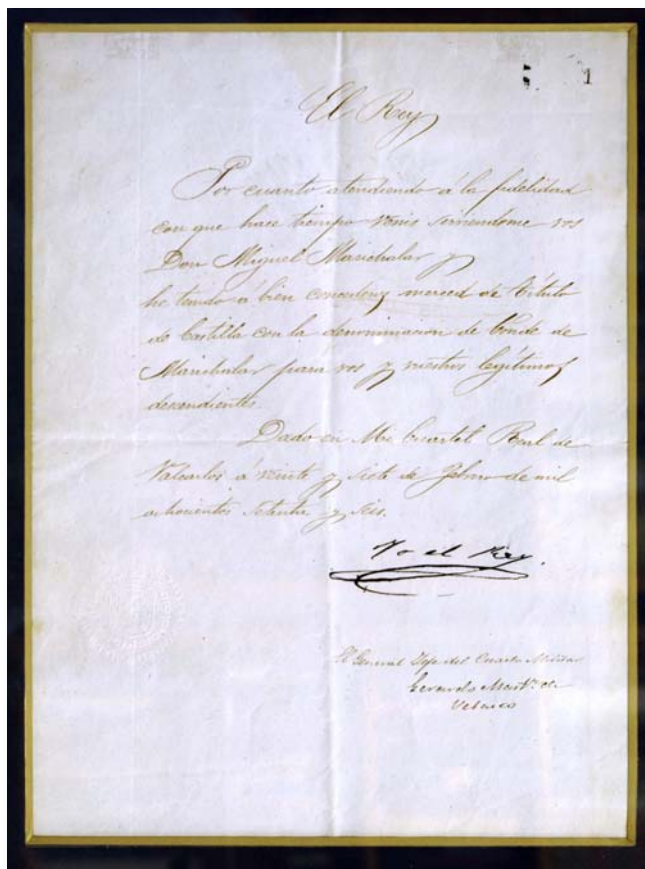 El Rey
Por cuanto atendiendo á la fidelidad
con que hace tiempo venis sirviendome vos
Don Miguel Marichalar y
he tenido á bien concederos merced de Título
de Castilla con la denominacion de Conde de
Marichalar para vos y vuestros legítimos
descendientes.
Dado en Mi Cuartel Real de
Valcarlos á veinte y siete de Febrero de mil
ochocientos setenta y seis.
Yo el Rey.
El General Jefe del Cuarto Militar
Gerardo Mart.z de
Velasco